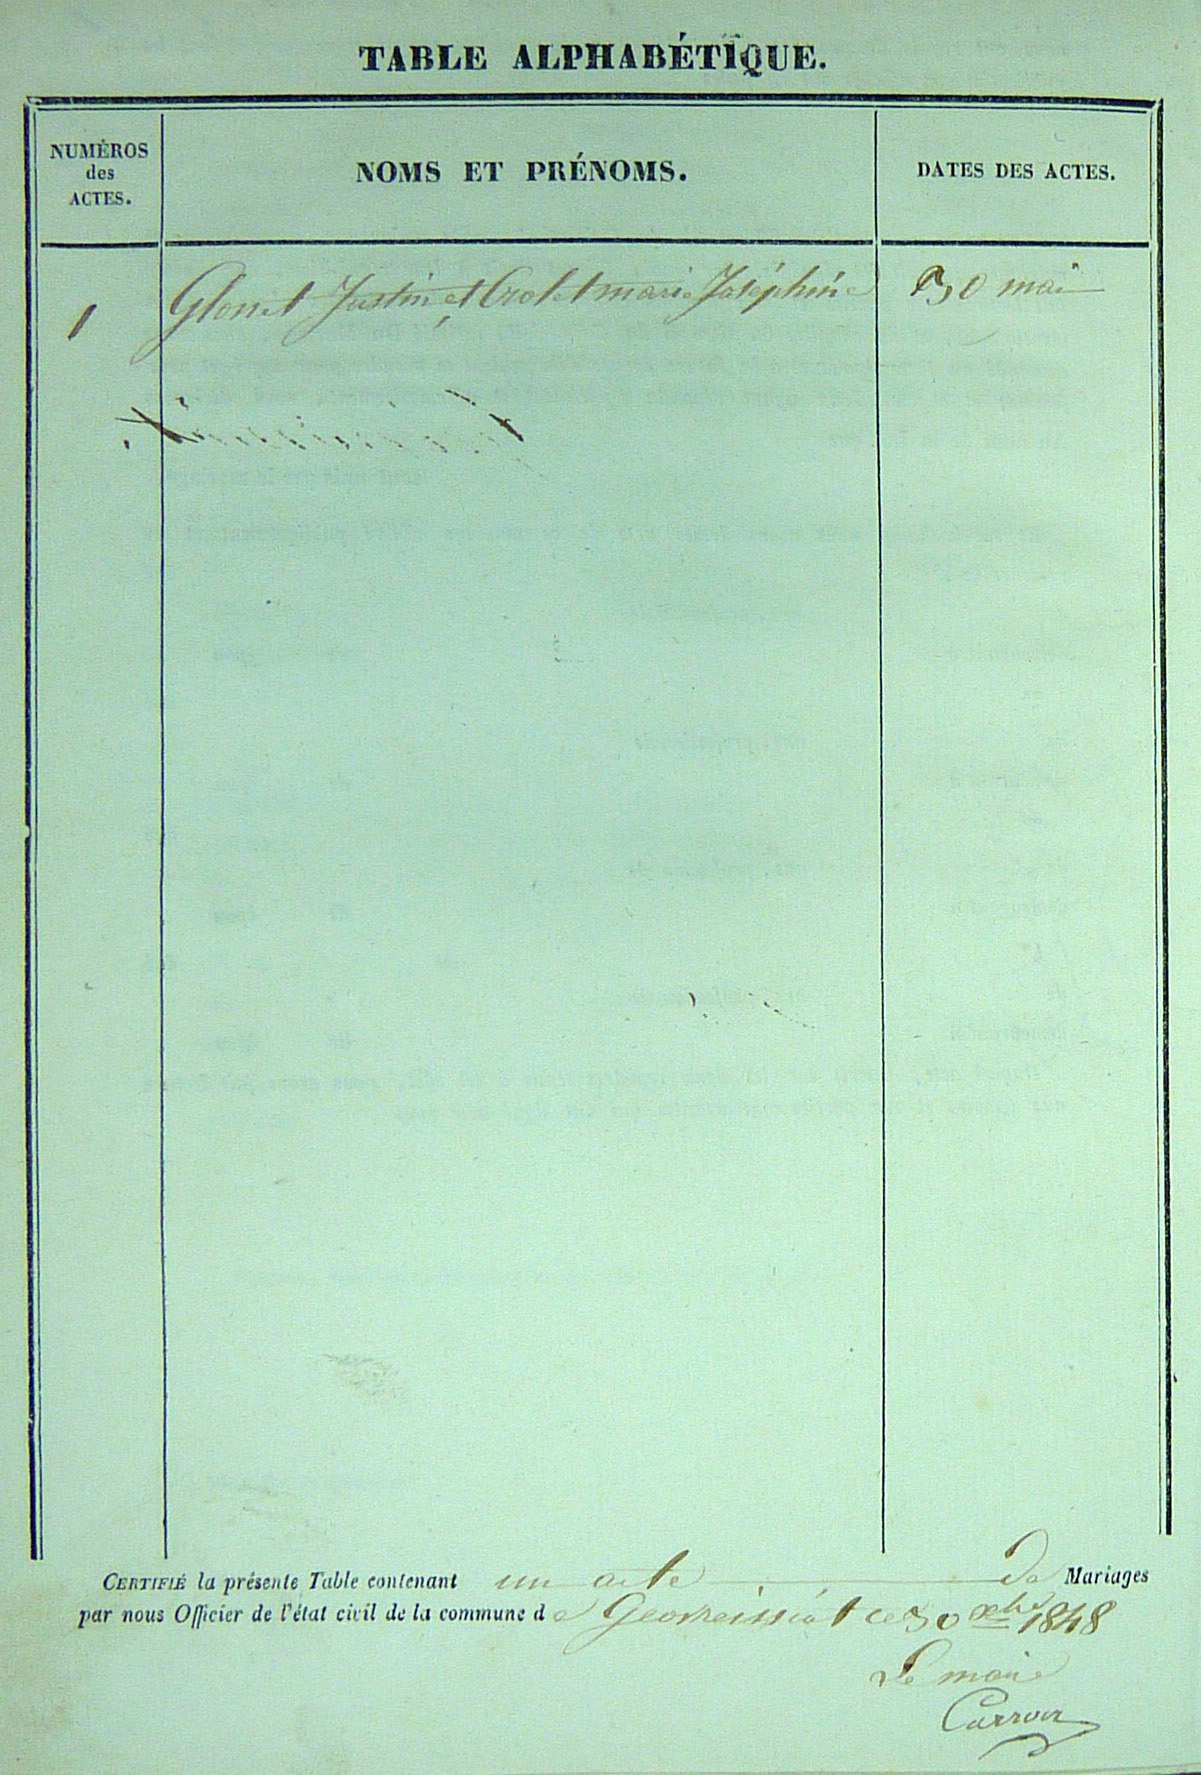 TABLE ALPHABÉTIQUE.
NUMÉROS
des
ACTES.
NOMS ET PRÉNOMS.
DATES DES ACTES.
1 Glonet Justin et Crolet marie Joséphine 30 mai
CERTIFIÉ la présente Table contenant un acte de Mariages
par nous Officier de l'état civil de la commune de Geovreissiat ce 30 xbre 1848
Le maire